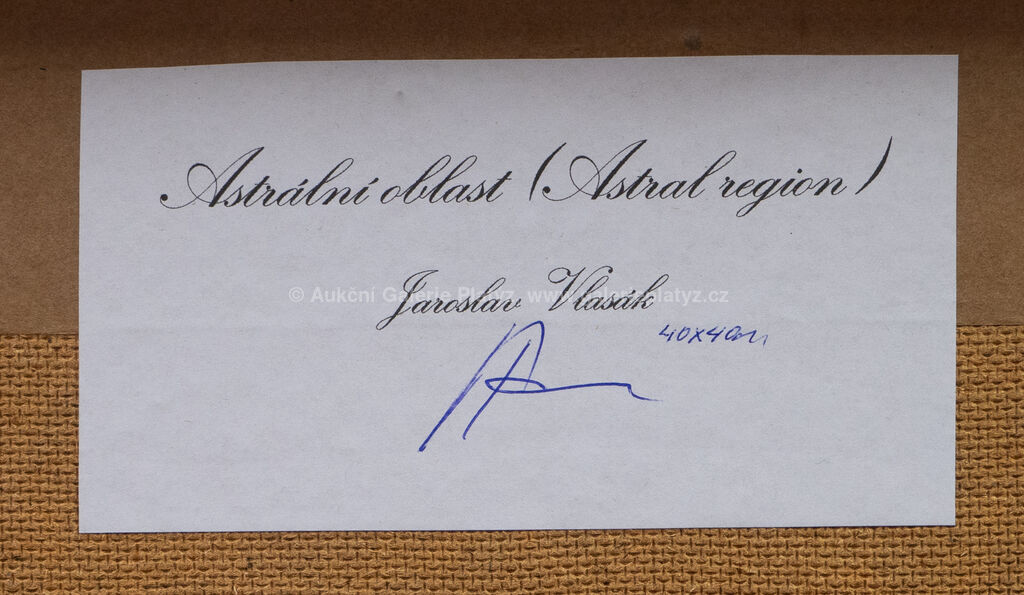 Astrální oblast (Astral region)
Jaroslav Vlasák
© Aukční Galerie Platýz, www.galerieplatyz.cz
40x40cm